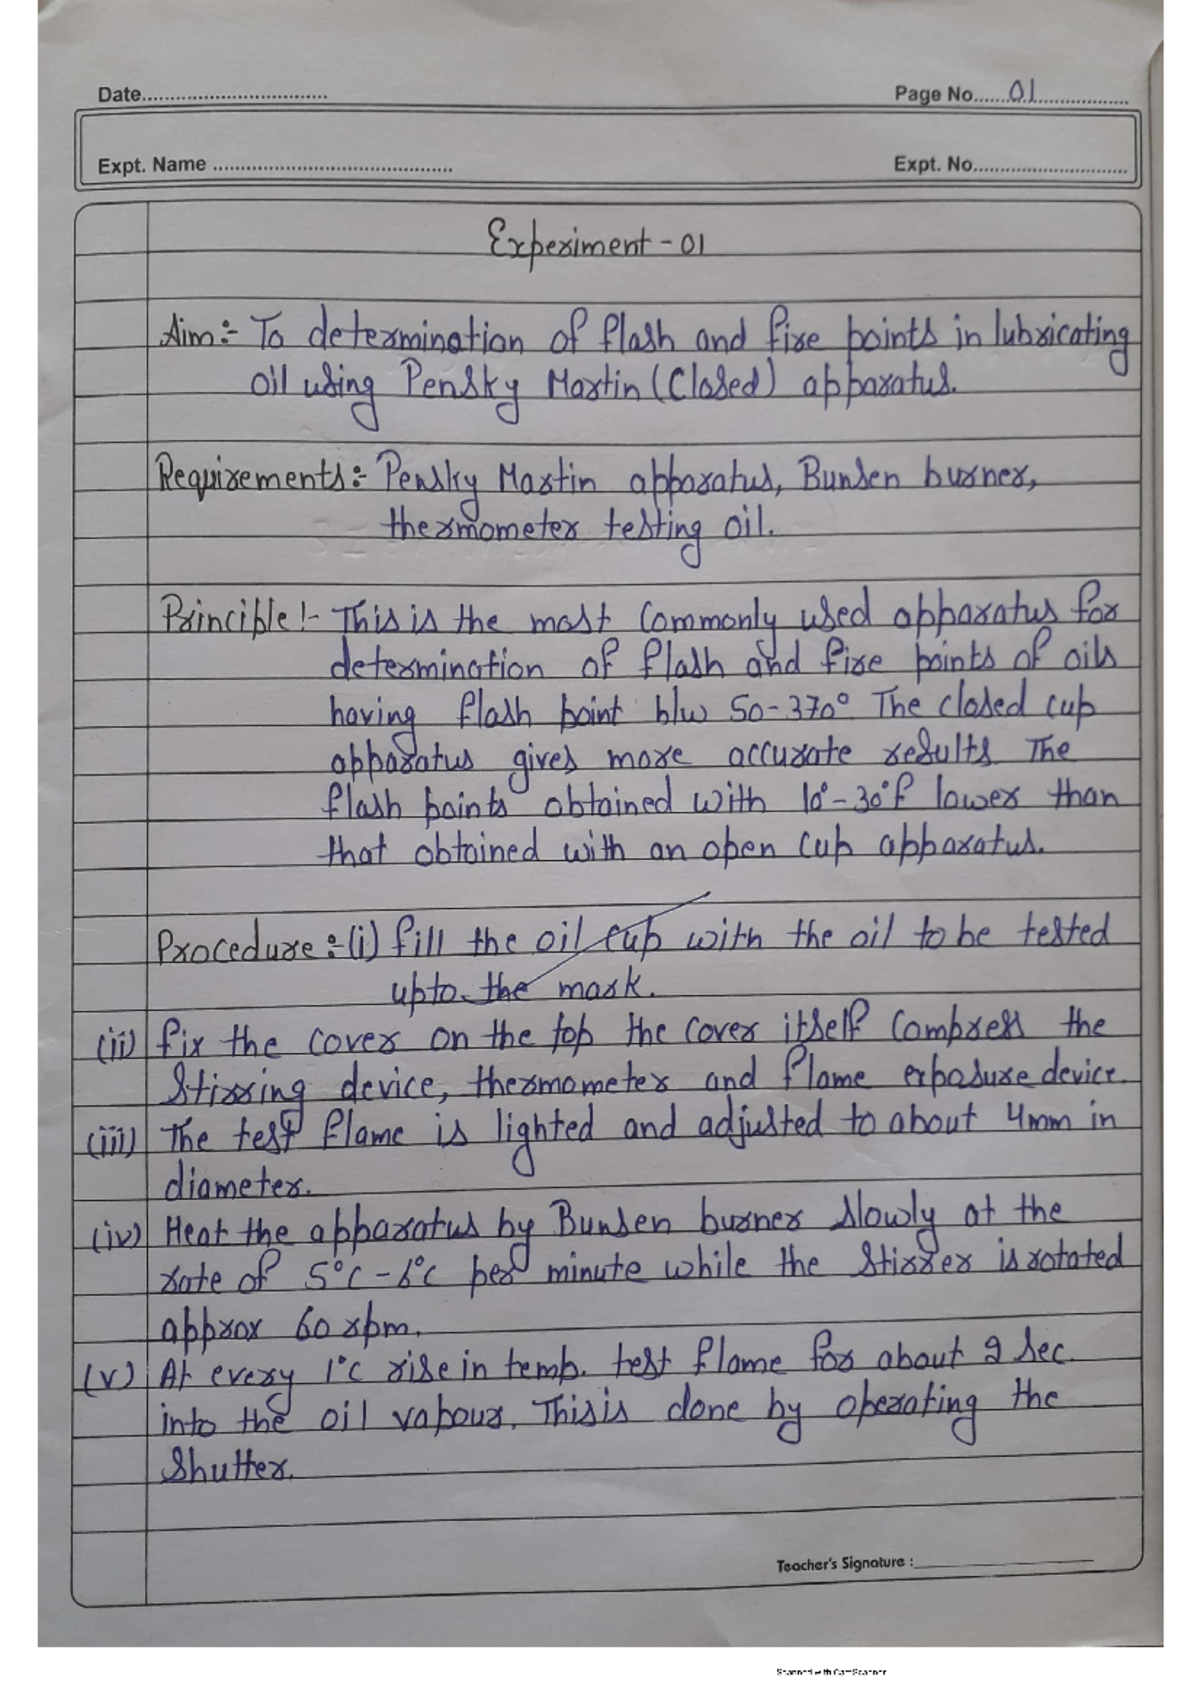 Date................................ Page No.......01..................
Expt. Name .......................................... Expt. No............................
Experiment - 01
Aim:- To determination of flash and fire points in lubricating
oil using Pensky Martin (Closed) apparatus.
Requirements:- Pensky Martin apparatus, Bunsen burner,
thermometer testing oil.
Princible:- This is the most Commonly used apparatus for
determination of flash and fire points of oils
having flash point b/w 50-370°. The closed cup
apparatus gives more accurate results. The
flash points obtained with 10°-30°f lower than
that obtained with an open cup apparatus.
Procedure:-(i) fill the oil cup with the oil to be tested
upto the mark.
(ii) fix the cover on the top the cover itself Compress the
Stirring device, thermometer and flame exposure device.
(iii) The test flame is lighted and adjusted to about 4mm in
diameter.
(iv) Heat the apparatus by Bunsen burner slowly at the
rate of 5°C-6°C per minute while the stirrer is rotated
approx 60 rpm.
(v) At every 1°C rise in temp. test flame for about 2 sec.
into the oil vapour. This is done by operating the
Shutter.
Teacher's Signature :
Scanned with CamScanner